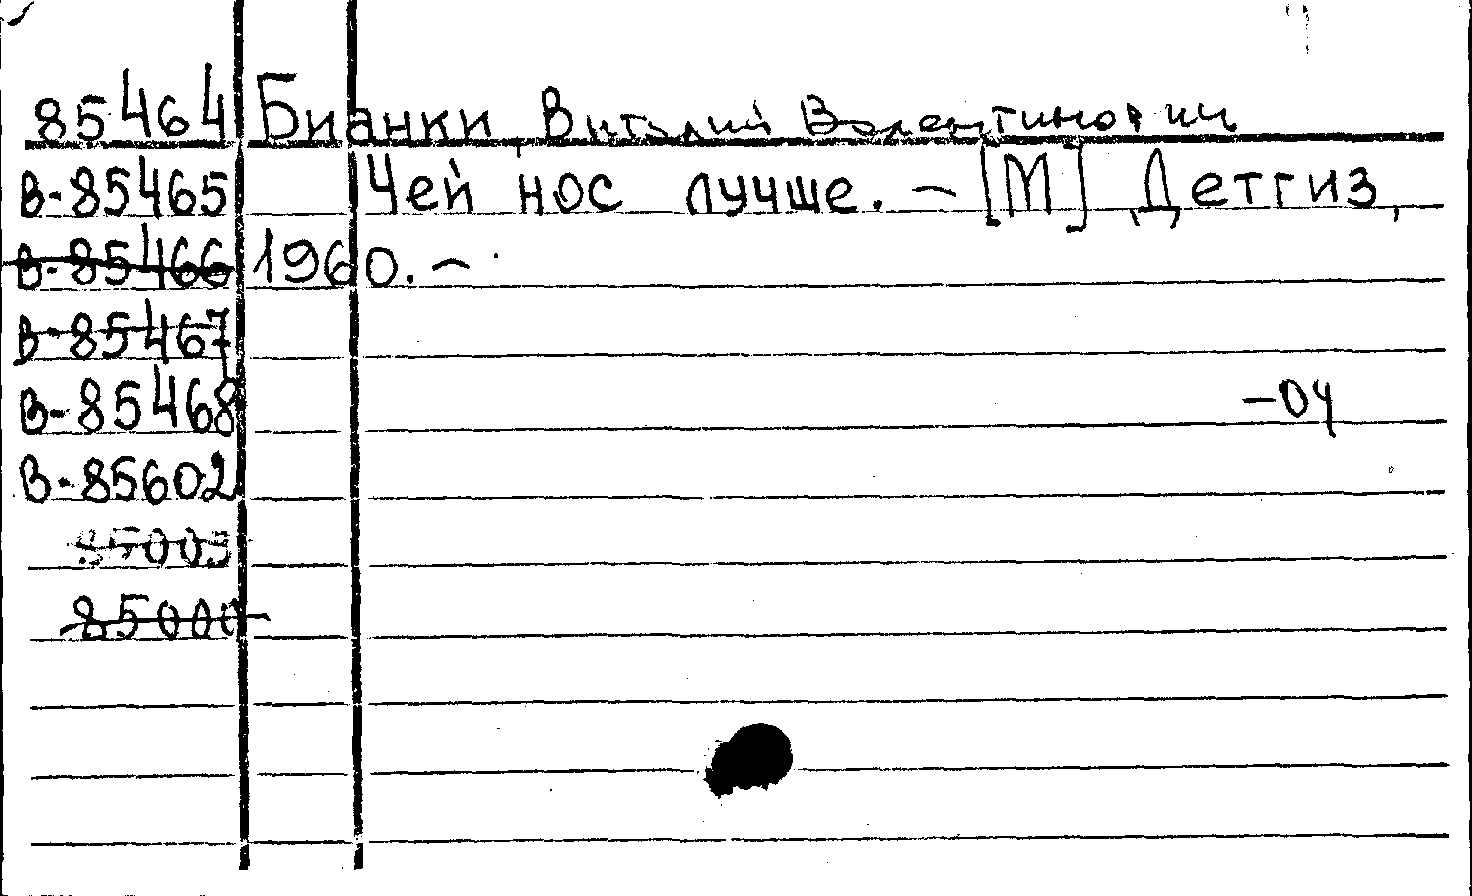 85464 Бианки Виталий Валентинович
В-85465 Чей нос лучше. - [М] Детгиз,
В-85466 1960. -
В-85467
В-85468 -04
В-85602
85003
85000